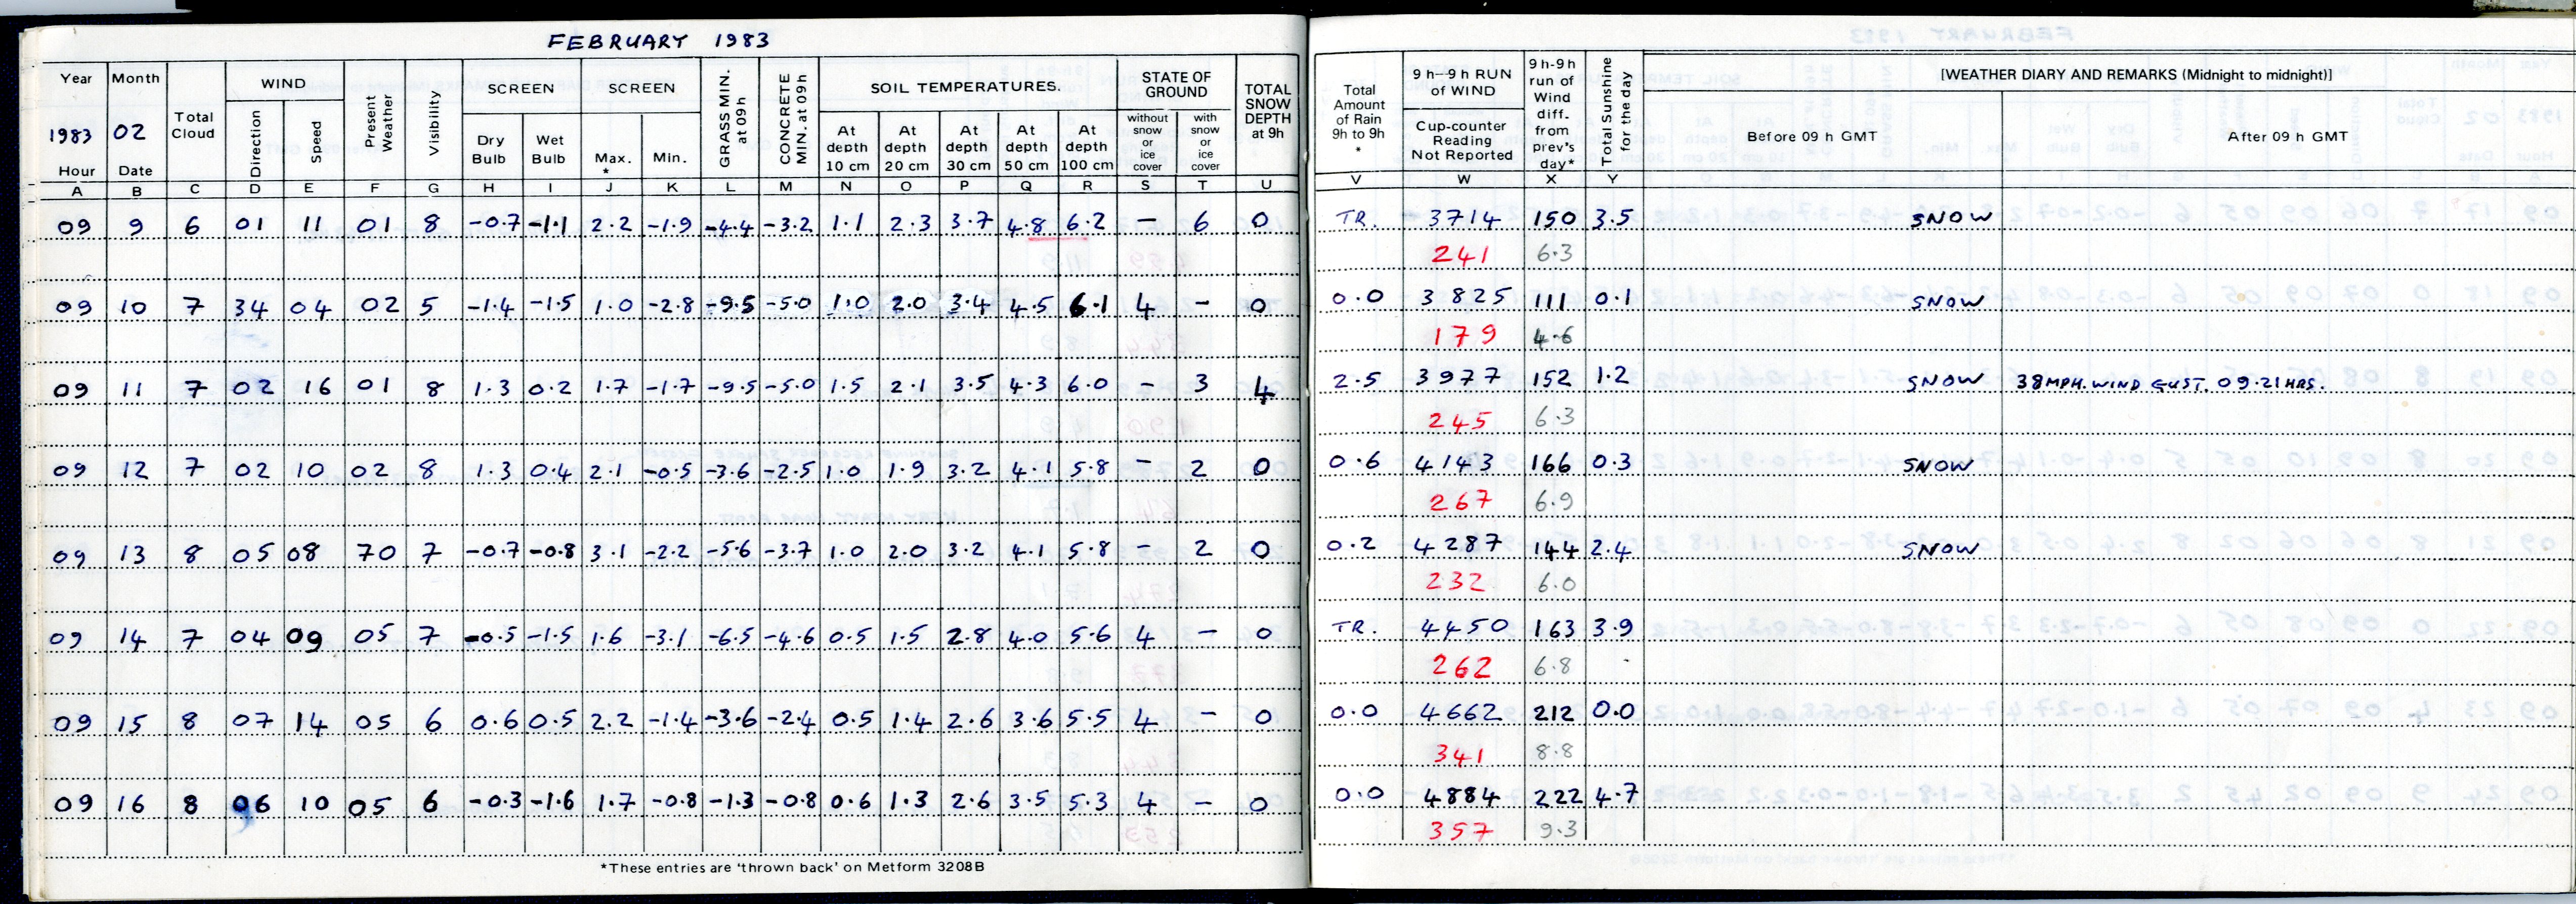 FEBRUARY 1983
Year Month Total Cloud WIND Present Weather Visibility SCREEN SCREEN GRASS MIN. at 09h CONCRETE MIN. at 09h SOIL TEMPERATURES. STATE OF GROUND TOTAL SNOW DEPTH at 9h Total Amount of Rain 9h to 9h * 9 h–9 h RUN of WIND 9 h-9 h run of Wind diff. from prev's day* Total Sunshine for the day [WEATHER DIARY AND REMARKS (Midnight to midnight)]
1983 02 Direction Speed Dry Bulb Wet Bulb Max. * Min. At depth 10 cm At depth 20 cm At depth 30 cm At depth 50 cm At depth 100 cm without snow or ice cover with snow or ice cover Cup-counter Reading Not Reported Before 09 h GMT After 09 h GMT
Hour Date
A B C D E F G H I J K L M N O P Q R S T U V W X Y
09 9 6 01 11 01 8 -0.7 -1.1 2.2 -1.9 -4.4 -3.2 1.1 2.3 3.7 4.8 6.2 – 6 0 TR. 3714 150 3.5 SNOW
241 6.3
09 10 7 34 04 02 5 -1.4 -1.5 1.0 -2.8 -9.5 -5.0 1.0 2.0 3.4 4.5 6.1 4 – 0 0.0 3825 111 0.1 SNOW
179 4.6
09 11 7 02 16 01 8 1.3 0.2 1.7 -1.7 -9.5 -5.0 1.5 2.1 3.5 4.3 6.0 – 3 4 2.5 3977 152 1.2 SNOW 38MPH. WIND GUST. 09.21HRS.
245 6.3
09 12 7 02 10 02 8 1.3 0.4 2.1 -0.5 -3.6 -2.5 1.0 1.9 3.2 4.1 5.8 – 2 0 0.6 4143 166 0.3 SNOW
267 6.9
09 13 8 05 08 70 7 -0.7 -0.8 3.1 -2.2 -5.6 -3.7 1.0 2.0 3.2 4.1 5.8 – 2 0 0.2 4287 144 2.4 SNOW
232 6.0
09 14 7 04 09 05 7 -0.5 -1.5 1.6 -3.1 -6.5 -4.6 0.5 1.5 2.8 4.0 5.6 4 – 0 TR. 4450 163 3.9
262 6.8
09 15 8 07 14 05 6 0.6 0.5 2.2 -1.4 -3.6 -2.4 0.5 1.4 2.6 3.6 5.5 4 – 0 0.0 4662 212 0.0
341 8.8
09 16 8 06 10 05 6 -0.3 -1.6 1.7 -0.8 -1.3 -0.8 0.6 1.3 2.6 3.5 5.3 4 – 0 0.0 4884 222 4.7
357 9.3
*These entries are 'thrown back' on Metform 3208B